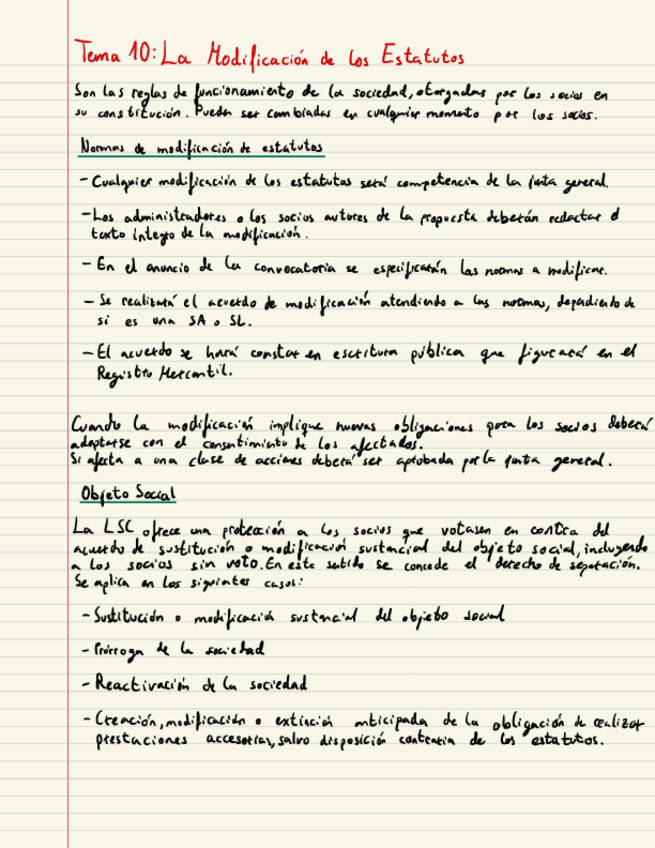 Tema 10: La Modificación de los Estatutos
Son las reglas de funcionamiento de la sociedad, otorgadas por los socios en
su constitución. Pueden ser cambiadas en cualquier momento por los socios.
Normas de modificación de estatutos
- Cualquier modificación de los estatutos será competencia de la junta general.
- Los administradores o los socios autores de la propuesta deberán redactar el
texto íntegro de la modificación.
- En el anuncio de la convocatoria se especificarán las normas a modificar.
- Se realizará el acuerdo de modificación atendiendo a las normas, dependiendo de
si es una SA o SL.
- El acuerdo se hará constar en escritura pública que figurará en el
Registro Mercantil.
Cuando la modificación implique nuevas obligaciones para los socios deberá
adoptarse con el consentimiento de los afectados.
Si afecta a una clase de acciones deberá ser aprobada por la junta general.
Objeto Social
La LSC ofrece una protección a los socios que votasen en contra del
acuerdo de sustitución o modificación sustancial del objeto social, incluyendo
a los socios sin voto. En este sentido se concede el derecho de separación.
Se aplica en los siguientes casos:
- Sustitución o modificación sustancial del objeto social
- Prórroga de la sociedad
- Reactivación de la sociedad
- Creación, modificación o extinción anticipada de la obligación de realizar
prestaciones accesorias, salvo disposición contraria de los estatutos.